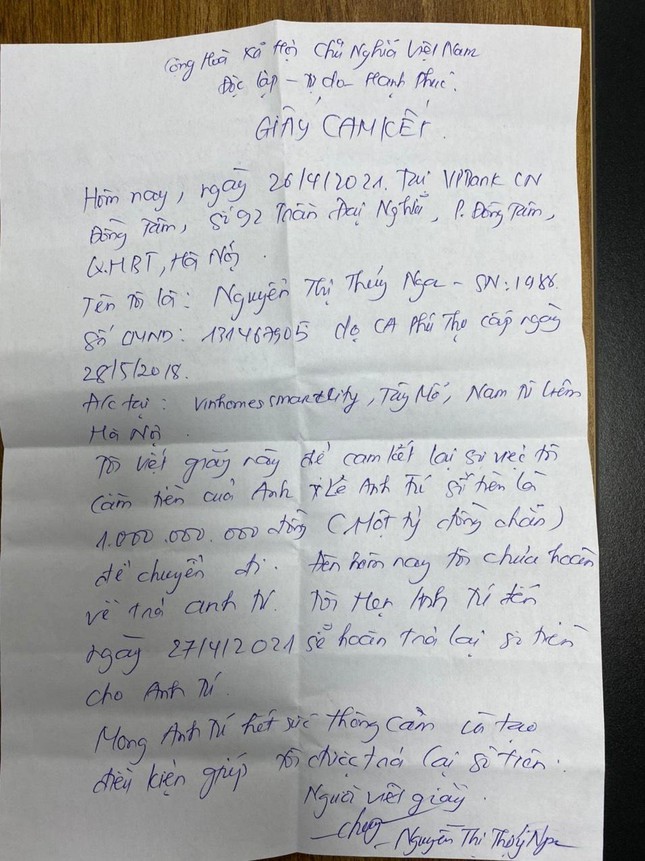 Cộng Hoà Xã Hội Chủ Nghĩa Việt Nam
Độc lập - Tự do Hạnh Phúc.
GIẤY CAM KẾT.
Hôm nay, ngày 26/4/2021. Tại VPBank CN
Đồng Tâm, số 92 Trần Đại Nghĩa, P. Đồng Tâm,
Q.HBT, Hà Nội.
Tên tôi là: Nguyễn Thị Thúy Nga - SN: 1986.
Số CMND: 131467905 do CA Phú Thọ cấp ngày
28/5/2018.
Đ/c tại: Vinhomes smart city, Tây Mỗ, Nam Từ Liêm
Hà Nội.
Tôi viết giấy này để cam kết lại sự việc tôi
cầm tiền của Anh Lê Anh Tú số tiền là
1.000.000.000 đồng (Một tỷ đồng chẵn)
để chuyển đi. Đến hôm nay tôi chưa hoàn
về trả anh Tú. Tôi Hẹn Anh Tú đến
ngày 27/4/2021 sẽ hoàn trả lại số tiền
cho Anh Tú.
Mong Anh Tú hết sức thông cảm và tạo
điều kiện giúp tôi được trả lại số tiền.
Người viết giấy
Nguyễn Thị Thúy Nga